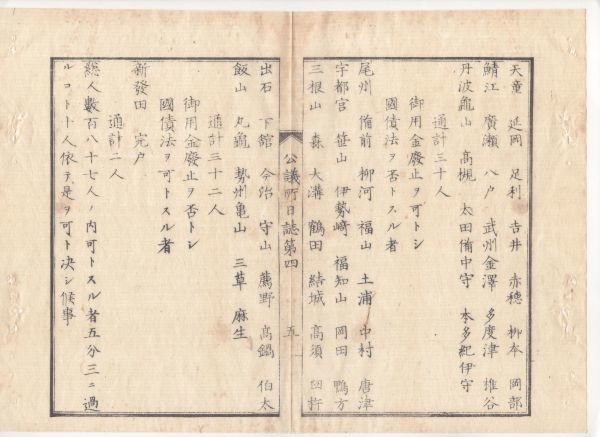 天童 延岡 足利 吉井 赤穂 柳本 岡部
鯖江 廣瀬 八戸 武州金澤 多度津 椎谷
丹波龜山 高槻 太田備中守 本多紀伊守
通計三十人
御用金廢止ヲ可トシ
國債法ヲ否トスル者
尾州 備前 柳河 福山 土浦 中村 唐津
宇都宮 笹山 伊勢﨑 福知山 岡田 鴨方
三根山 森 大溝 鶴田 結城 高須 臼杵
公議所日誌第四 五
出石 下館 今治 守山 薦野 高鍋 伯太
飯山 丸龜 勢州亀山 三草 麻生
通計三十二人
御用金廢止ヲ否トシ
國債法ヲ可トスル者
新發田 宍戸
通計二人
総人數百八十七人ノ内可トスル者五分三ニ過
ルコト十人依テ是ヲ可ト决シ候事